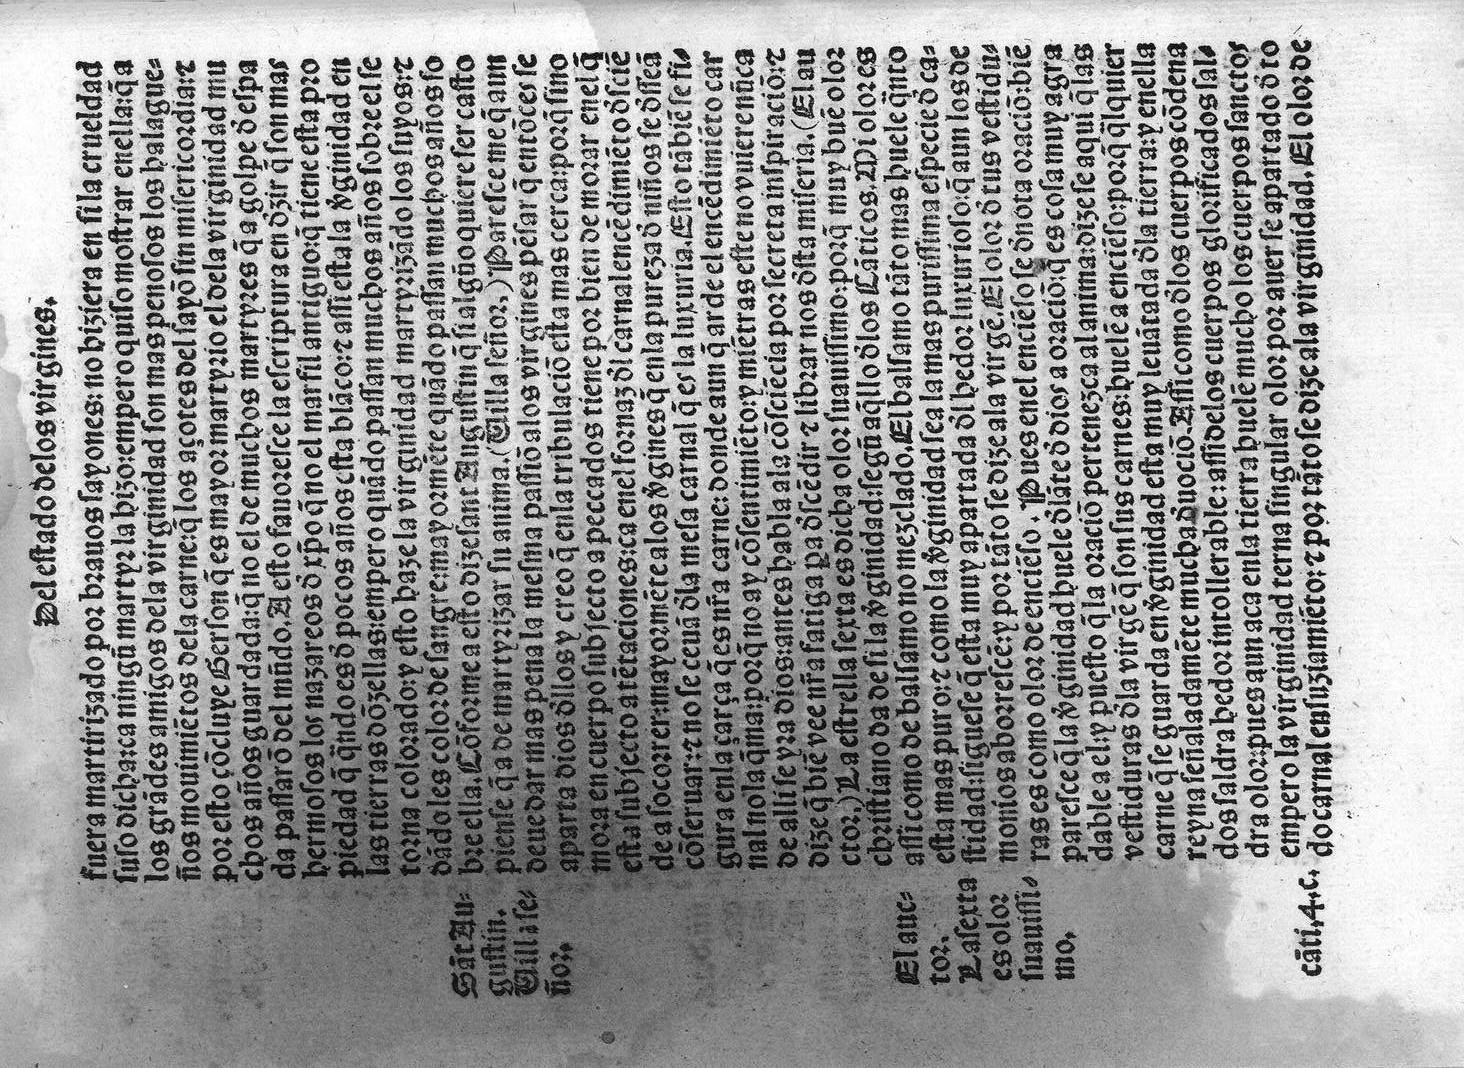 Del estado delos virgines.
fuera martirizado por brauos sayones: no hiziera en si la crueldad
suso dicha: ca ningũ martyr la hizo: empero quiso mostrar enella: q̃ a
los grãdes amigos dela virginidad son mas penosos los halague-
ños mouimiẽtos dela carne: q̃ los açotes del sayõ sin misericordia: ⁊
por esto cõcluye Gerson q̃ es mayor martyrio el dela virginidad mu
chos años guardada: q̃ no el de muchos martyres q̃ a golpe d̃ espa
da passarõ del mũdo. A esto fauoresce la escriptura en d̃zir q̃ son mas
hermosos los nazareos d̃ xp̃o q̃ no el marfil antiguo: q̃ tiene esta pro
piedad q̃ q̃ndo es d̃ pocos años esta blãco: ⁊ assi esta la v̓ginidad en
las tierras dõzellas: empero quãdo passan muchos años sobre el se
torna colorado: y esto haze la virginidad martyrizãdo los suyos: ⁊
dãdo les color de sangre: mayormẽte quãdo passan muchos años so
bre ella. Cõforme a esto dize sant Augustin q̃ si alguo quiere ser casto
piense q̃ a de martyrizar su anima. (Uilla señor.) Paresce me q̃ aun
deue dar mas pena la mesma passiõ a los virgines pẽsar q̃ entõces se
aparta dios d̃llos y creo q̃ enla tribulaciõ esta mas cerca: porq̃ sino
mora en cuerpo subjecto a peccados tiene por bien de morar enel q̃
esta subjecto a tẽtaciones: ca enel fornaz d̃l carnal encẽdimiẽto d̃sciẽ
de a socorrer: mayormẽte a los v̓gines q̃ enla pureza d̃ niños se d̃ssẽa
cõseruar: ⁊ no se ceuã d̃la mesa carnal q̃ es la luxuria. Esto tãbiẽ se fi-
gura enla çarça q̃ es nr̃a carne: donde aun q̃ arde el encẽdimiẽto car
nal no la q̃ma: porq̃ no ay cõsentimiẽto: y miẽtras este no viniere nũca
de alli se va dios: antes habla a la cõsciẽcia por secreta inspiraciõ: ⁊
dize q̃ biẽ vee nr̃a fatiga ⁊ a d̃scẽdir ⁊ librar nos d̃sta miseria. (El au
ctor.) La estrella sexta es dicha olor suauissimo: porq̃ muy buẽ olor
christiano da de si la v̓ginidad: segũ aq̃llo d̃los Cãticos. Mi olor es
assi como de balsamo no mezclado. El balsamo tãto mas huele q̃nto
esta mas puro: ⁊ como la v̓ginidad sea la mas purissima especie d̃ ca-
stidad: siguese q̃ esta muy apartada d̃l hedor luxurioso: q̃ aun los de
moniosaborrescẽ: y por tãto se dize a la virgẽ. El olor d̃ tus vestidu-
ras es como olor de enciẽso. Pues enel enciẽso se d̃nota oraciõ: biẽ
paresce q̃ la v̓ginidad huele d̃lãte d̃ dios a oraciõ q̃ es cosa muy agra
dable a el: y puesto q̃ la oraciõ pertenezca al anima: dize se aqui q̃ las
vestiduras d̃la virgẽ q̃ son sus carnes: huelẽ a enciẽso: porq̃ q̃lquier
carne q̃ se guarda en v̓ginidad esta muy leuãtada d̃la tierra: y enella
reyna señaladamẽte mucha d̃uociõ. Assi como d̃los cuerpos cõdena
dos saldra hedor intollerable: assi delos cuerpos glorificados sal-
dra olor: pues aun aca enla tierra huelẽ mucho los cuerpos sanctos
empero la virginidad terna singular olor por auer se apartado d̃ to
do carnal ensuziamiẽto: ⁊ por tãto se dize a la virginidad. El olor de
Sãt Au-
gustin.
Uilla se-
ñor.
El auc-
tor.
La sexta
es olor
suauissi-
mo.
cãti. 4. c.